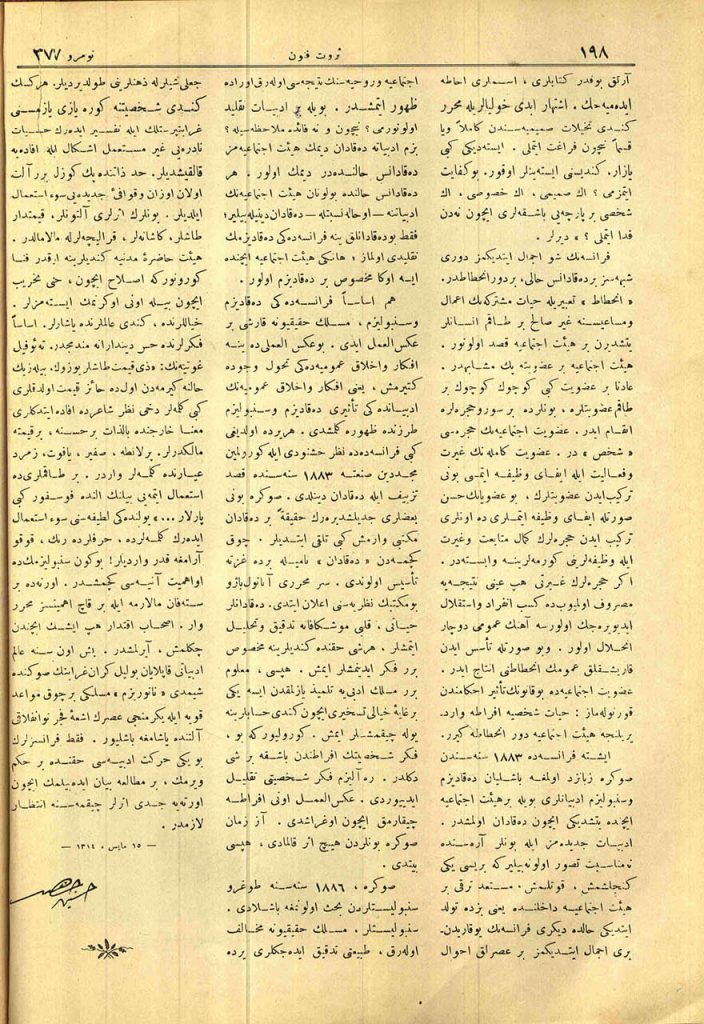 ١٩٨
ثروت فنون
نومرو ٣٧٧
آرتق بوقدر كتابلری ، اسملری احاطه
ايده ميه جك . اشتهار ابدی خوليالريله محرر
كندی تخيلات صميميه سندن كاملاً ويا
قسماً نيچون فراغت ايتملی ؟ ايسته ديكی كبی
يازار . كنديسنی ايسته ينلر اوقور . بوكفايت
ايتمزمی ؟ اك صميمی ، اك خصوصی ، اك
شخصی بر پارچه يی باشقه لری ايچون نه دن
فدا ايتملی ؟ » ديرلر .
فرانسه نك شو اجمال ايتديكمز دوری
شبهه سز برده قادانس حالی ، بردور انحطاطدر .
« انحطاط » تعبيريله حيات مشتركه نك اعمال
ومساعيسنه غير صالح بر طاقم انسانلر
يتشديرن بر هيئت اجتماعيه قصد اولونور .
هيئت اجتماعيه بر عضويته پك مشابهدر .
عادتا بر عضويت كبی كوچوك كوچوك بر
طاقم عضويتلره ، بونلرده بر سورو حجره لره
انقسام ايدر . عضويت اجتماعيه نك حجره سی
« شخص » در . عضويت كامله نك غيرت
وفعاليت ايله ايفای وظيفه ايتمسی بونی
تركيب ايدن عضويتلرك ، بو عضويا تك حسن
صورتله ايفای وظيفه ايتملری ده اونلری
تركيب ايدن حجره لرك كمال متابعت وغيرت
ايله وظيفه لرينی كورمه لرينه وابسته در .
اكر حجره لرك غيرتی هپ عينی نتيجه يه
مصروف اولميوب ده كسب انفراد واستقلال
ايديويره جك اولورسه آهنك عمومی دوچار
انحلال اولور . وبو صورتله تأسس ايدن
قاريشقلق عمومك انحطاطنی انتاج ايدر .
عضويت اجتماعيه ده بوقانونك تأثير احكامندن
قورتوله ماز : حيات شخصيه افراطه وارد
يرينجه هيئت اجتماعيه دور انحطاطه كيرر .
ايشته فرانسه ده ١٨٨٣ سنه سندن
صوكره زبانزد اولمغه باشلايان ده قاديزم
وسنبوليزم ادبياتلری بويله بر هيئت اجتماعيه
ايچنده يتشديكی ايچون ده قادان اولمشدر .
ادبيات جديده مز ايله بونلر آره سنده
نه مناسبت تصور اولونه بيلير كه بريسی يكی
كنجلشمش ، قوتلنمش ، مستعد ترقی بر
هيئت اجتماعيه داخلنده يعنی بزده تولد
ايتديكی حالده ديكری فرانسه نك يوقاريدن
بری اجمال ايتديكمز بر عصرلق احوال
اجتماعيه وروحيه سنك نتيجه سی اوله رق اوراده
ظهور ايتمشدر . بويله بر ادبيات تقليد
اولونورمی ؟ نيچون و نه فائده ملاحظه سيله ؟
بزم ادبياته ده قادان ديمك هيئت اجتماعيه مز
ده قادانس حالنده در ديمك اولور . هر
ده قادانس حالنده بولونان هيئت اجتماعيه نك
ادبياتنه — او حاله نسبتله — ده قادان دينيله بيلير ؛
فقط بو ده قادانلق ينه فرانسه ده كی ده قاديزمك
تقليدی اولماز ؛ هانكی هيئت اجتماعيه ايچنده
ايسه اوكا مخصوص بر ده قاديزم اولور .
هم اساساً فرانسه ده كی ده قاديزم
وسنبوليزم ، مسلك حقيقيونه قارشی بر
عكس العمل ايدی . بو عكس العملی ده ينه
افكار واخلاق عموميه ده كی تحول وجوده
كتيرمش ، يعنی افكار واخلاق عموميه نك
ادبياتده كی تأثيری ده قاديزم وسنبوليزم
طرزنده ظهوره كلمشدی . هر يرده اولديغی
كبی فرانسه ده ده نظر خشنودی ايله كورولمين
مجددين صنعته ١٨٨٣ سنه سنده قصد
تزييف ايله ده قادان دينلدی . صوكره بونی
بعضلری جديلشديره رك حقيقةً بر ده قادان
مكتبی وارمش كبی تلقی ايتديلر . چوق
كچمه دن « ده قادان » ناميله برده غزته
تأسيس اولوندی . سر محرری آناتول باژو
بومكتبك نظريه سنی اعلان ايتدی . ده قادانلر
حياتی ، قلبی موشكافانه تدقيق وتحليل
ايتمشلر ، هر شی حقنده كنديلرينه مخصوص
برر فكر ايدينمشلر ايمش . هپسی ، معلوم
برر مسلك ادبی يه تلميذ يازلمقدن ايسه يكی
بر غايۀ خيالی تسخيری ايچون كندی حسابلرينه
يوله چيقمشلر ايمش . كورولوركه بو ،
فكر شخصيتك افراطندن باشقه بر شی
دكلدر . ره آليزم فكر شخصيتی تقليل
ايدييوردی . عكس العمل اونی افراطه
چيقارمق ايچون اوغراشدی . آز زمان
صوكره بونلردن هيچ اثر قالمادی ، هپسی
بيتدی .
صوكره ، ١٨٨٦ سنه سنه طوغرو
سنبوليستلردن بحث اولونمغه باشلادی .
سنبوليستلر ، مسلك حقيقيونه مخالف
اوله رق ، طبيعتی تدقيق ايده جكلری يرده
جعلی شيلر له ذهنلرينی طولديرديلر . هركسك
كندی شخصيتنه كوره يازی يازمسنی
غرابتپرستلك ايله تفسير ايده رك حسيات
نادره يی غير مستعمل اشكال ايله افاده يه
قالقيشديلر . حد ذاتنده پك كوزل برر آلت
اولان اوزان وقوافئ جديده يی سوء استعمال
ايلديلر . بونلرك اثرلری آلتونلر ، قيمتدار
طاشلر ، كاشانه لر ، قراليچه لرله مالامالدر .
هيئت حاضرۀ مدنيه كنديلرينه اوقدر فنا
كورونور كه اصلاح ايچون ، حتی تخريب
ايچون بيله اونی اوكرنمك ايسته مزلر .
خياللرنده ، كندی عالملرنده ياشارلر . اساساً
فكرلرنده حس دينداراانه مندمجدر . ته ئوفيل
غوتيه نك : « ذی قيمت طاشلر يوزوك . بيله زيك
حالنه كيرمه دن اول ده حائز قيمت اولدقلری
كبی كلمه لر دخی نظر شاعرده افاده ايتدكلری
معنا خارجنده بالذات برحسنه ، برقيمته
مالكدرلر . پرلانطه ، صفير ، ياقوت ، زمرد
عيارنده كلمه لر واردر . بر طاقملری ده
استعمال ايتمه نی بيلنك النده فوسفور كبی
پارلار ... » يولنده كی لطيفه سنی سوء استعمال
ايده رك كلمه لرده ، حرفلرده رنك ، قوقو
آرامغه قدر وارديلر ! بوكون سنبوليزمك ده
او اهميت آنيه سی كچمشدر . اورته ده بر
سته فان مالارمه ايله بر قاچ اهميتسز محرر
وار . اصحاب اقتدار هپ ايشك ايچندن
چكلمش ، آيرلمشدر . بش اون سنه عالم
ادبياتی قاپلايان بو ليل كران غرابتك صوكنده
شيمدی « ناتوريزم » مسلكی بر چوق مواعد
قويه ايله يكرمنجی عصرك اشعۀ فجر نوانفلاقی
آلتنده ياشامغه باشليور . فقط فرانسزلرك
بو يكی حركت ادبيه سی حقنده بر حكم
ويرمك ، بر مطالعه بيان ايده بيلمك ايچون
اورته يه جدی اثرلر چيقمه سنه انتظار
لازمدر .
— ١٥ مايس ، ١٣١٤ —
حسين جاهد